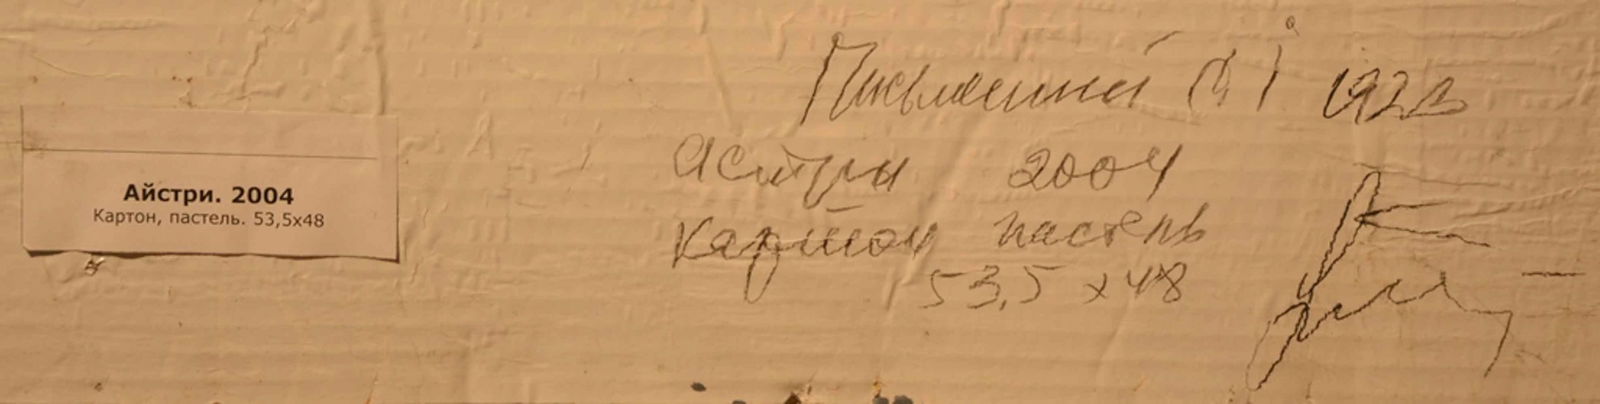 Айстри. 2004
Картон, пастель. 53,5x48
Письменный
Астры 2004
Картон пастель
53,5 x 48